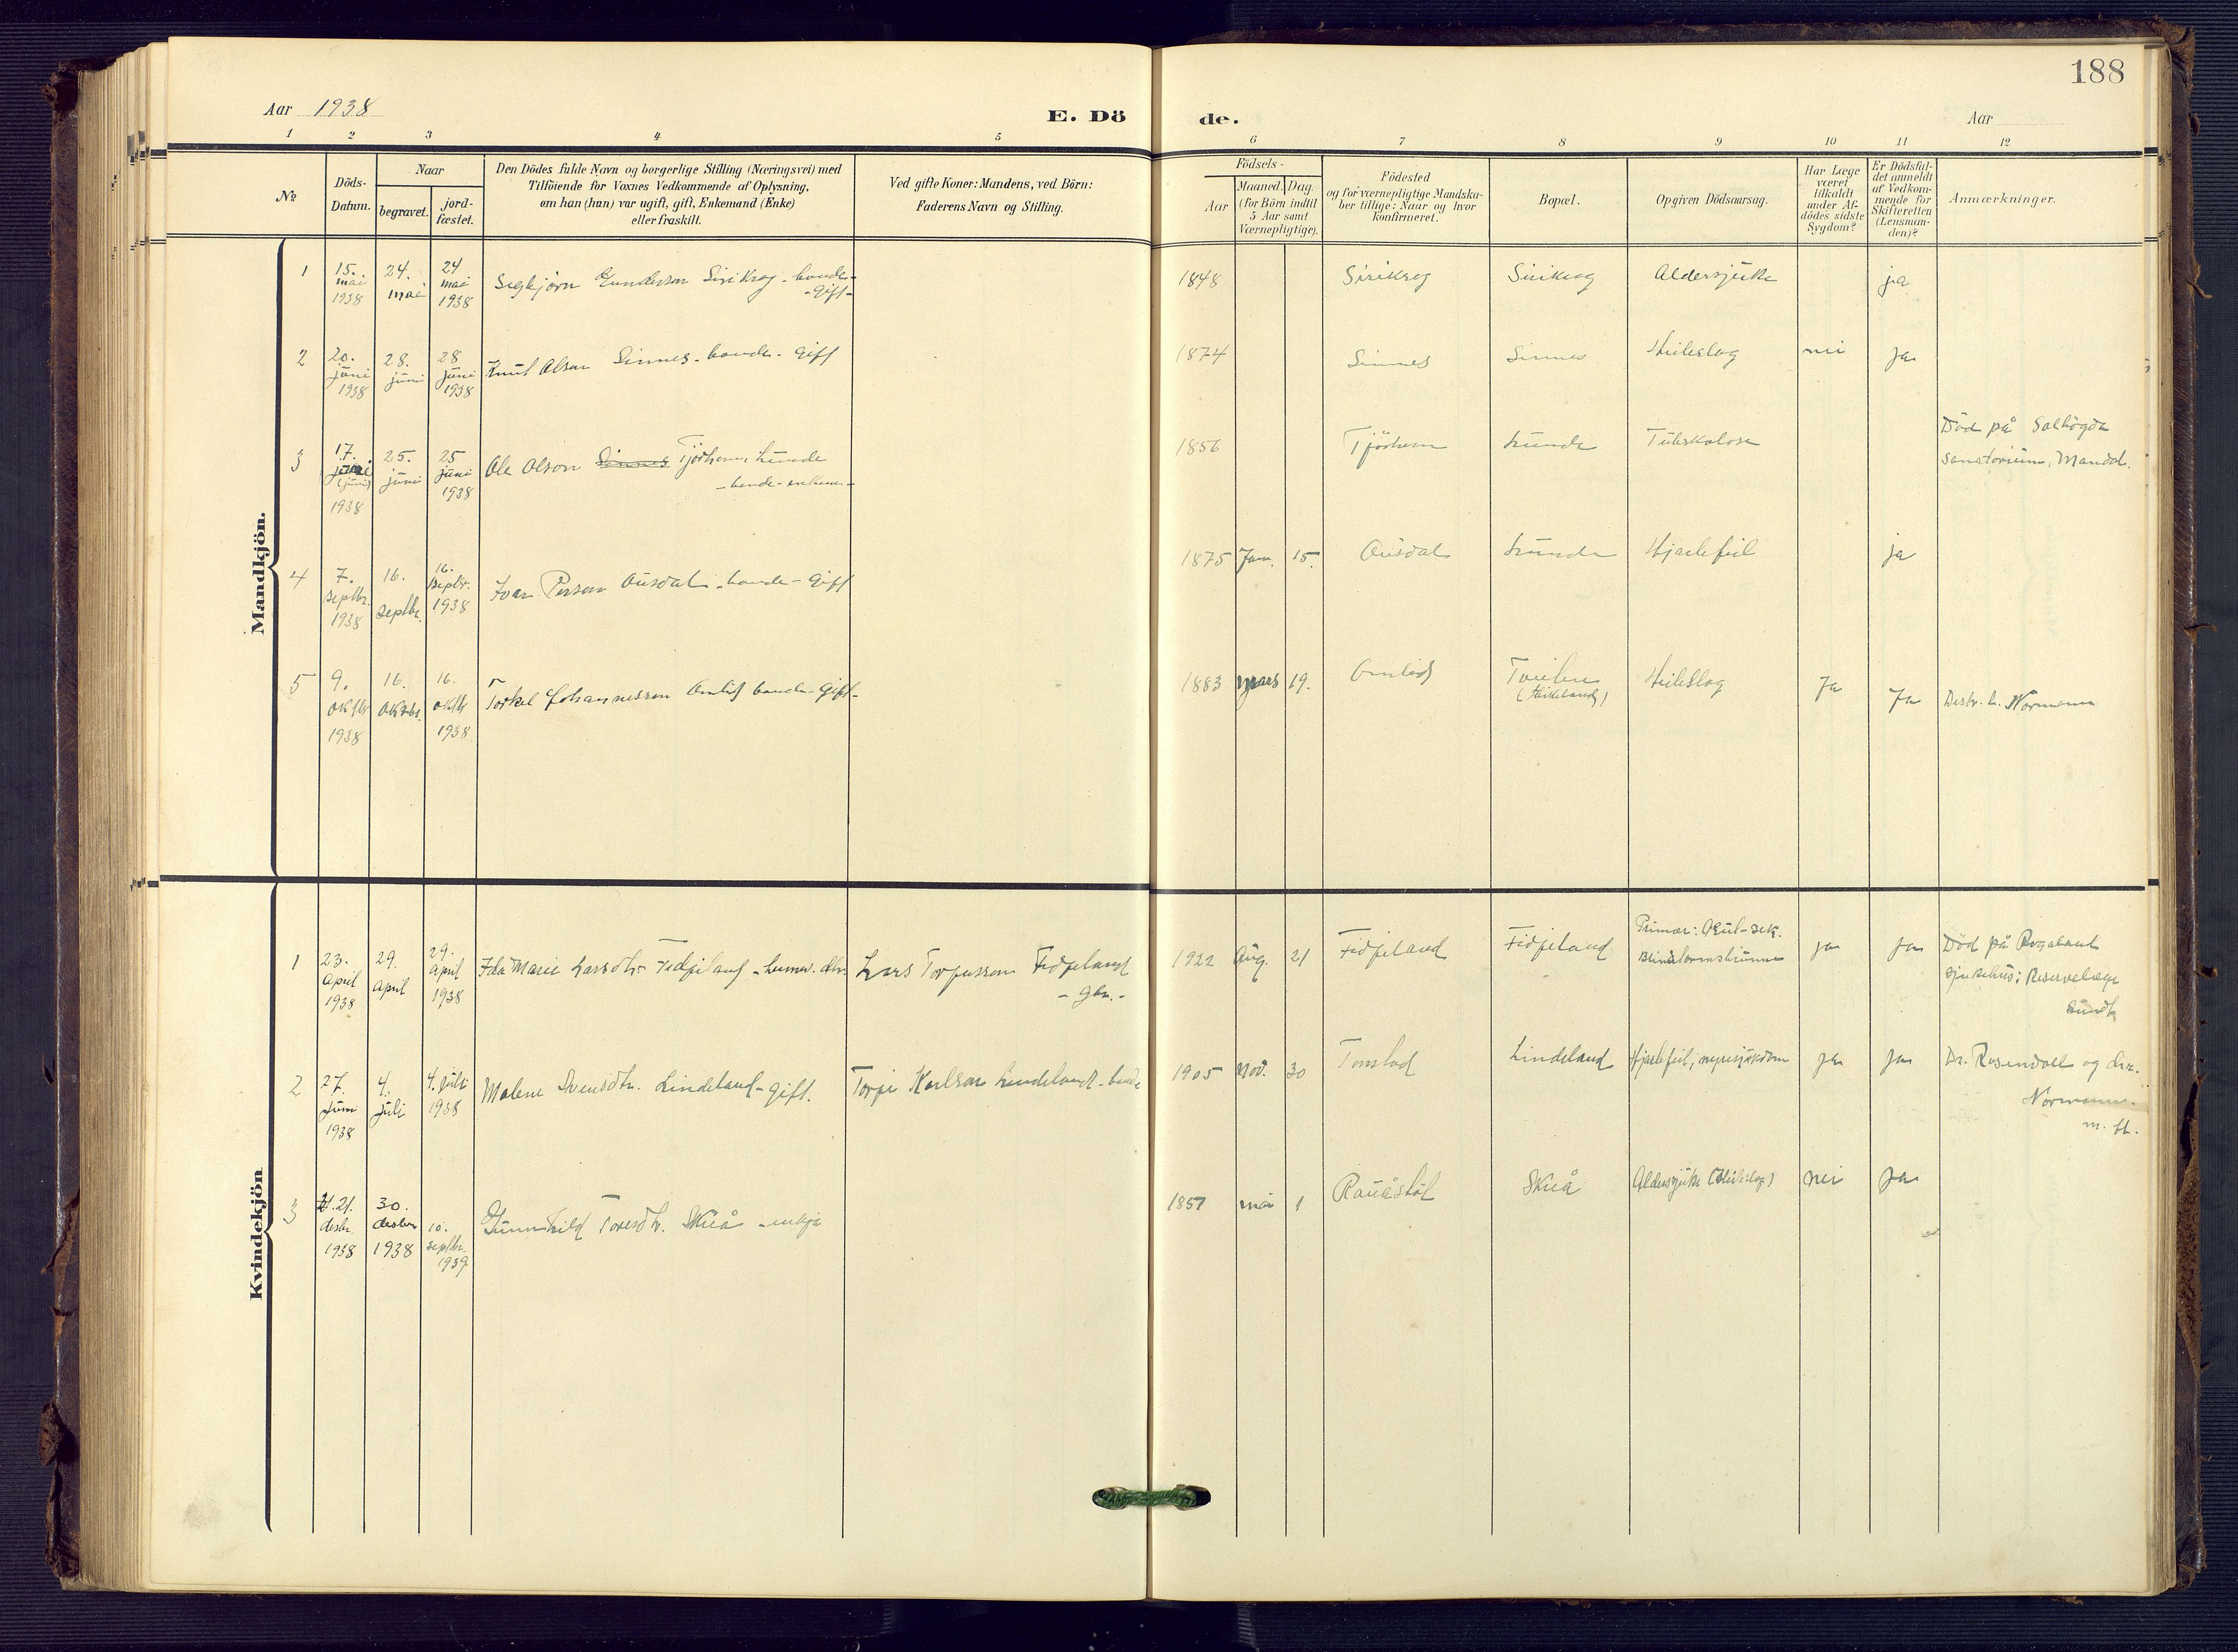 188
Aar 1938
E. Dö de.
Aar
1 2 3 4 5 6 7 8 9 10 11 12
No
Döds-Datum.
Naar
begravet.
jord-fæstet.
Den Dödes fulde Navn og borgerlige Stilling (Næringsvei) med
Tilföiende for Voxnes Vedkommende af Oplysning,
om han (hun) var ugift, gift, Enkemand (Enke)
eller fraskilt.
Ved gifte Koner: Mandens, ved Börn:
Faderens Navn og Stilling.
Födsels-
Aar
Maaned. Dag.
(for Börn indtil
5 Aar samt
Værnepligtige).
Födested
og for værnepligtige Mandska-
ber tillige: Naar og hvor
konfirmeret.
Bopæl.
Opgiven Dödsaarsag.
Har Læge
været
tilkaldt
under Af-
dödes sidste
Sygdom?
Er Dödsfal-
det anmeldt
af Vedkom-
mende for
Skifteretten
(Lensman-
den)?
Anmærkninger.
Mandkjön.
1 15. mai 1938 24. mai 24 mai 1938 Gunderson Sirikrog - bonde - gift - 1848 Sirikrog Sirikrog Aldersjuke ja
2 20. juni 1938 28. juni 28 juni 1938 Knut Olson Sinnes - bonde - gift 1874 Sinnes Sinnes Heileslag nei ja
3 17. juni (juni) 1938 25. juni 25 juni 1938 Ole Olson Sinnes Tjörhom, Lunde
- bonde - 1856 Tjörhom Lunde Tuberkolose Död på Solhögda
sanatorium, Mandal.
4 7. septbr. 1938 16. septbr. 16. septbr. 1938 Ivar Person Ousdal - bonde - gift 1875 Jan. 15. Ousdal Lunde Hjartefeil ja
5 9. oktbr 1938 16. oktbr. 16. oktbr 1938 Torkel Johannesson Omlid bonde - gift - 1883 mars 19. Omlid
Heileslag Ja Ja Distr. l. Normann
Kvindekjön
1 23. april 1938 29. april 29. april 1938 Ida Marie Larsdtr. Fidjeland Lars Torjusson Fidjeland
- gbr. - 1922 Aug. 21 Fidjeland Fidjeland Primær: Akut
ja ja Död på Rogaland
sjukehus; Reservelæge
Sundt
2 27. juni 1938 4. juli 4. juli 1938 Malene Svensdtr. Lindeland - gift. Torje Karlson Lindeland - bonde 1905 Nov. 30 Tonstad Lindeland Hjartefeil, nyresjukdom ja ja Dr. Rosendall og
Normann.
m. fl.
3 21. desbr. 1938 30. desbr 1938 10. septbr. 1939 Gunnhild Toresdtr. Skuå - enkja 1857 mai 1 Rauåstöl Skuå Aldersjuke (Heileslag) nei ja